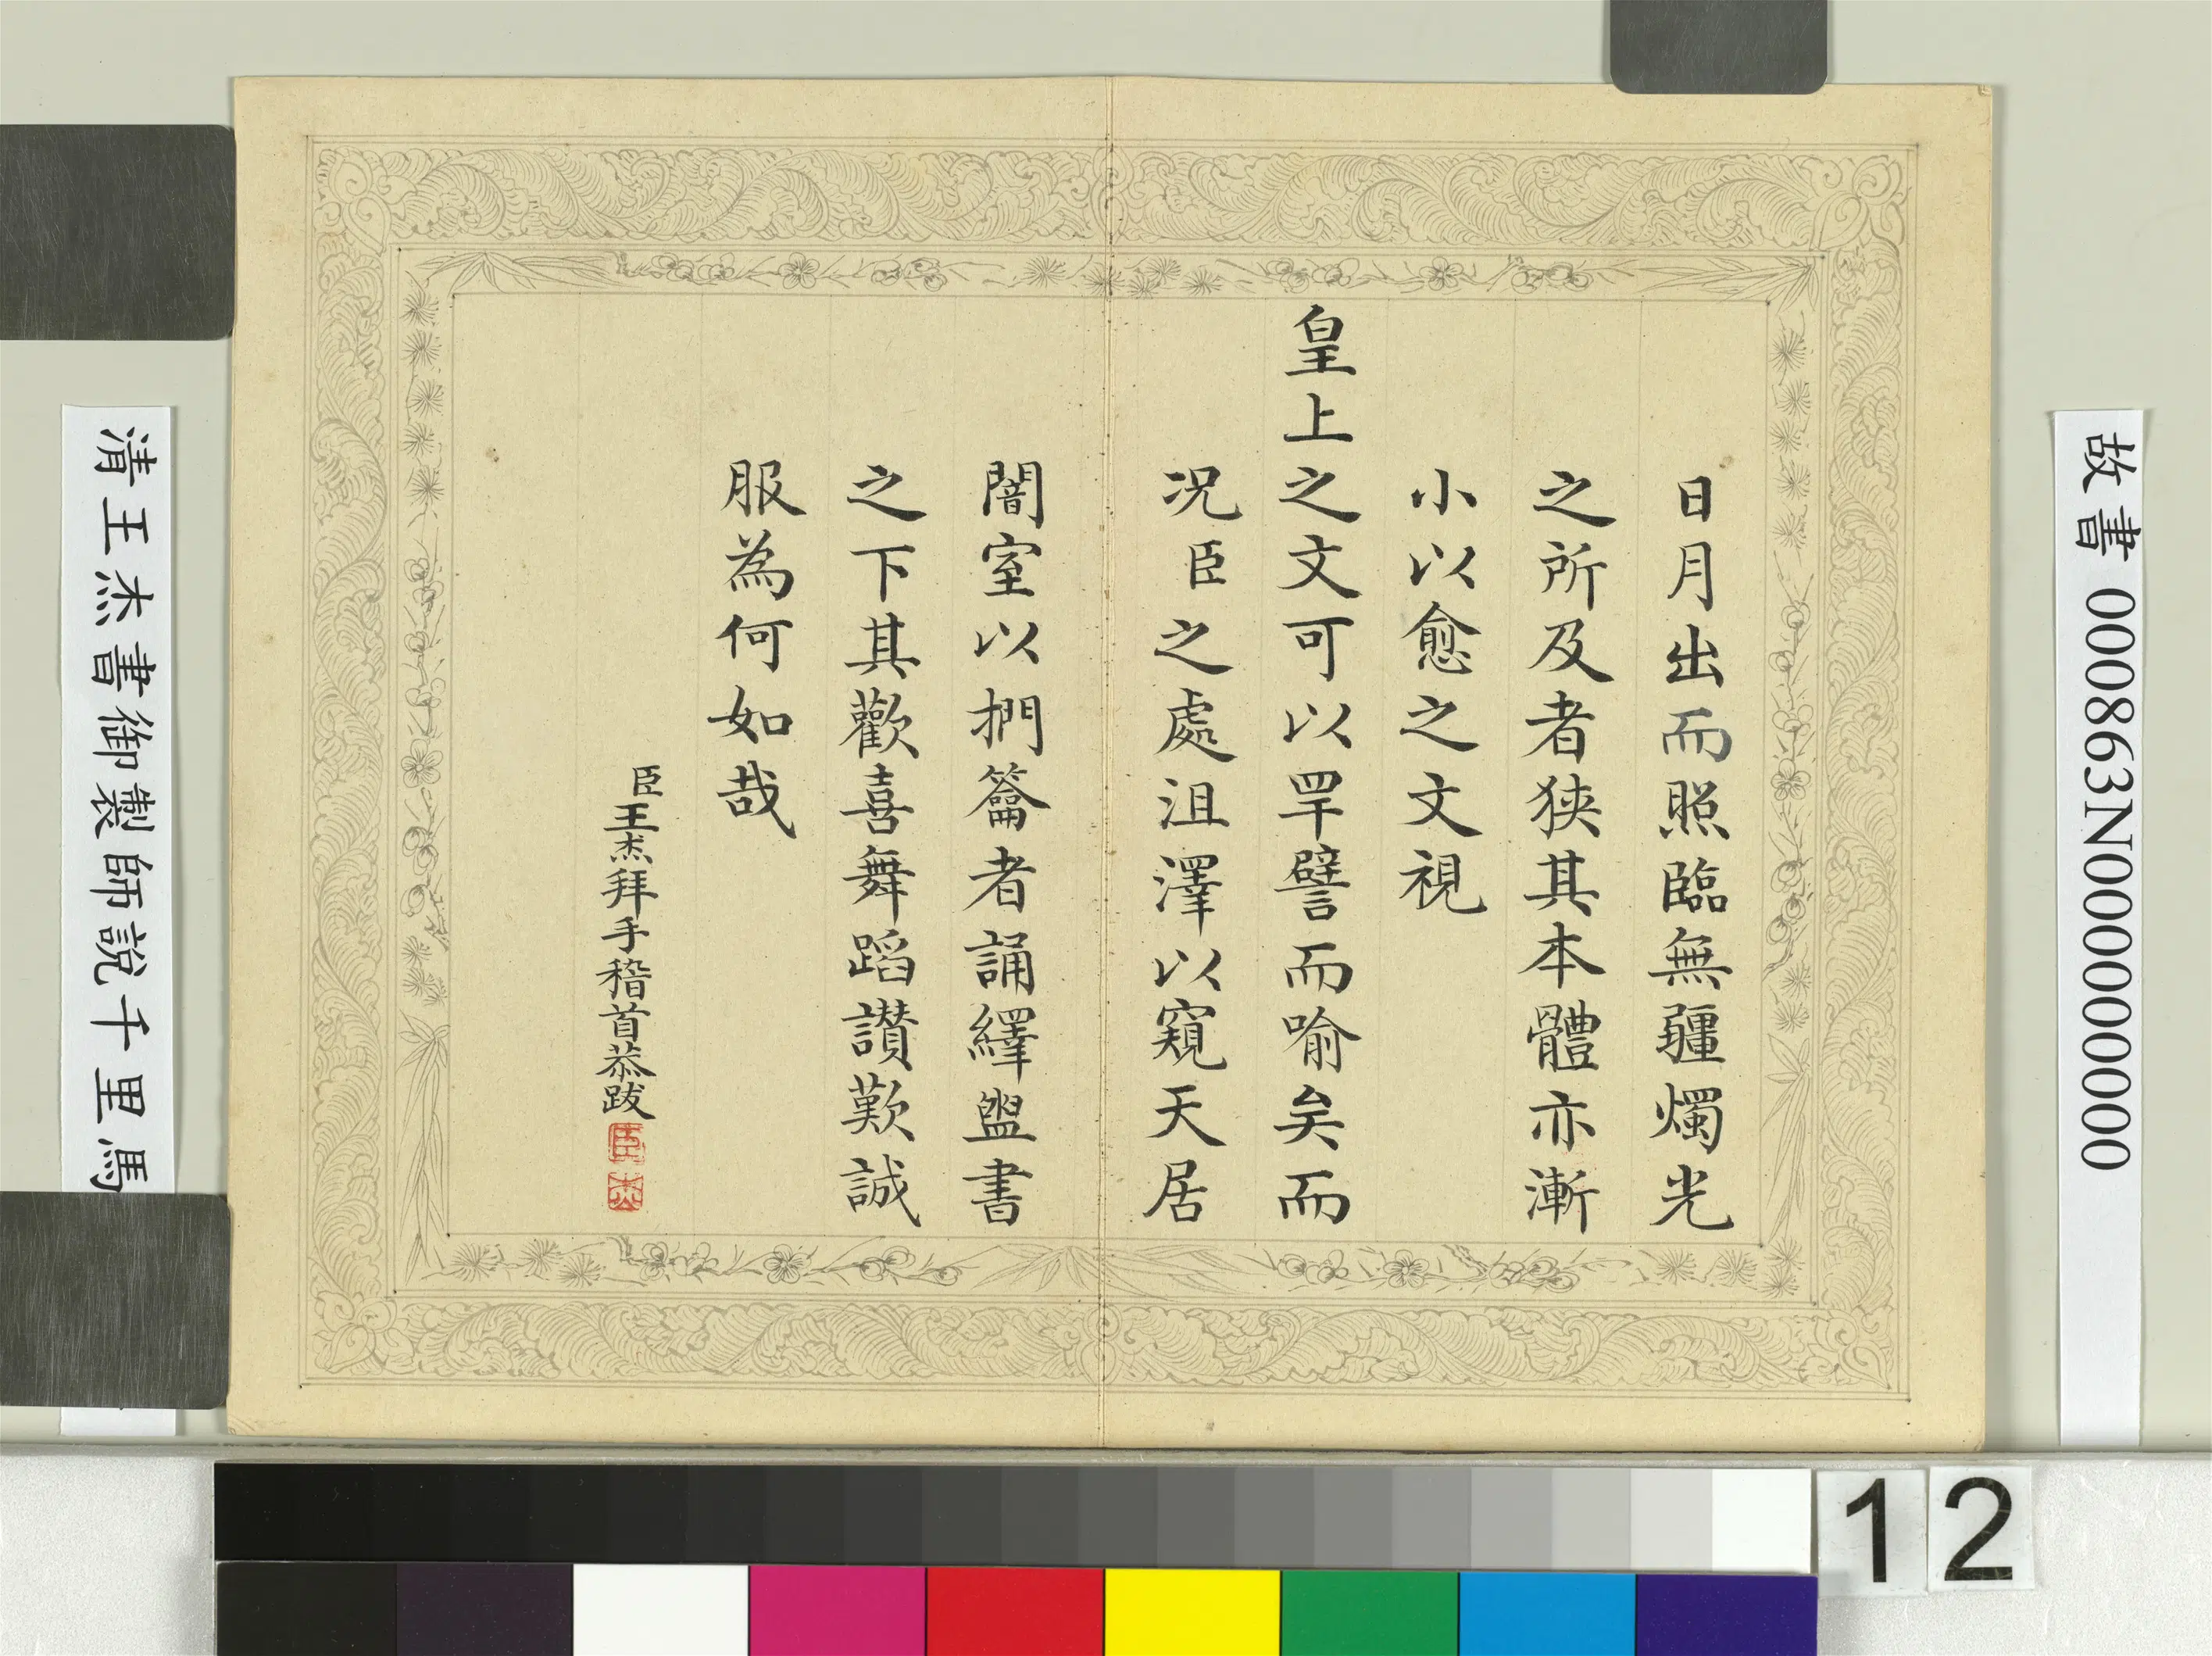 故書 000863N000000000
日月出而照臨無疆燭光
之所及者狹其本體亦漸
小以愈之文視
皇上之文可以罕譬而喻矣而
况臣之處沮澤以窺天居
闇室以捫籥者誦繹盥書
之下其歡喜舞蹈讚歎誠
服為何如哉
臣王杰拜手稽首恭跋
臣
杰
清王杰書御製師說千里馬
12